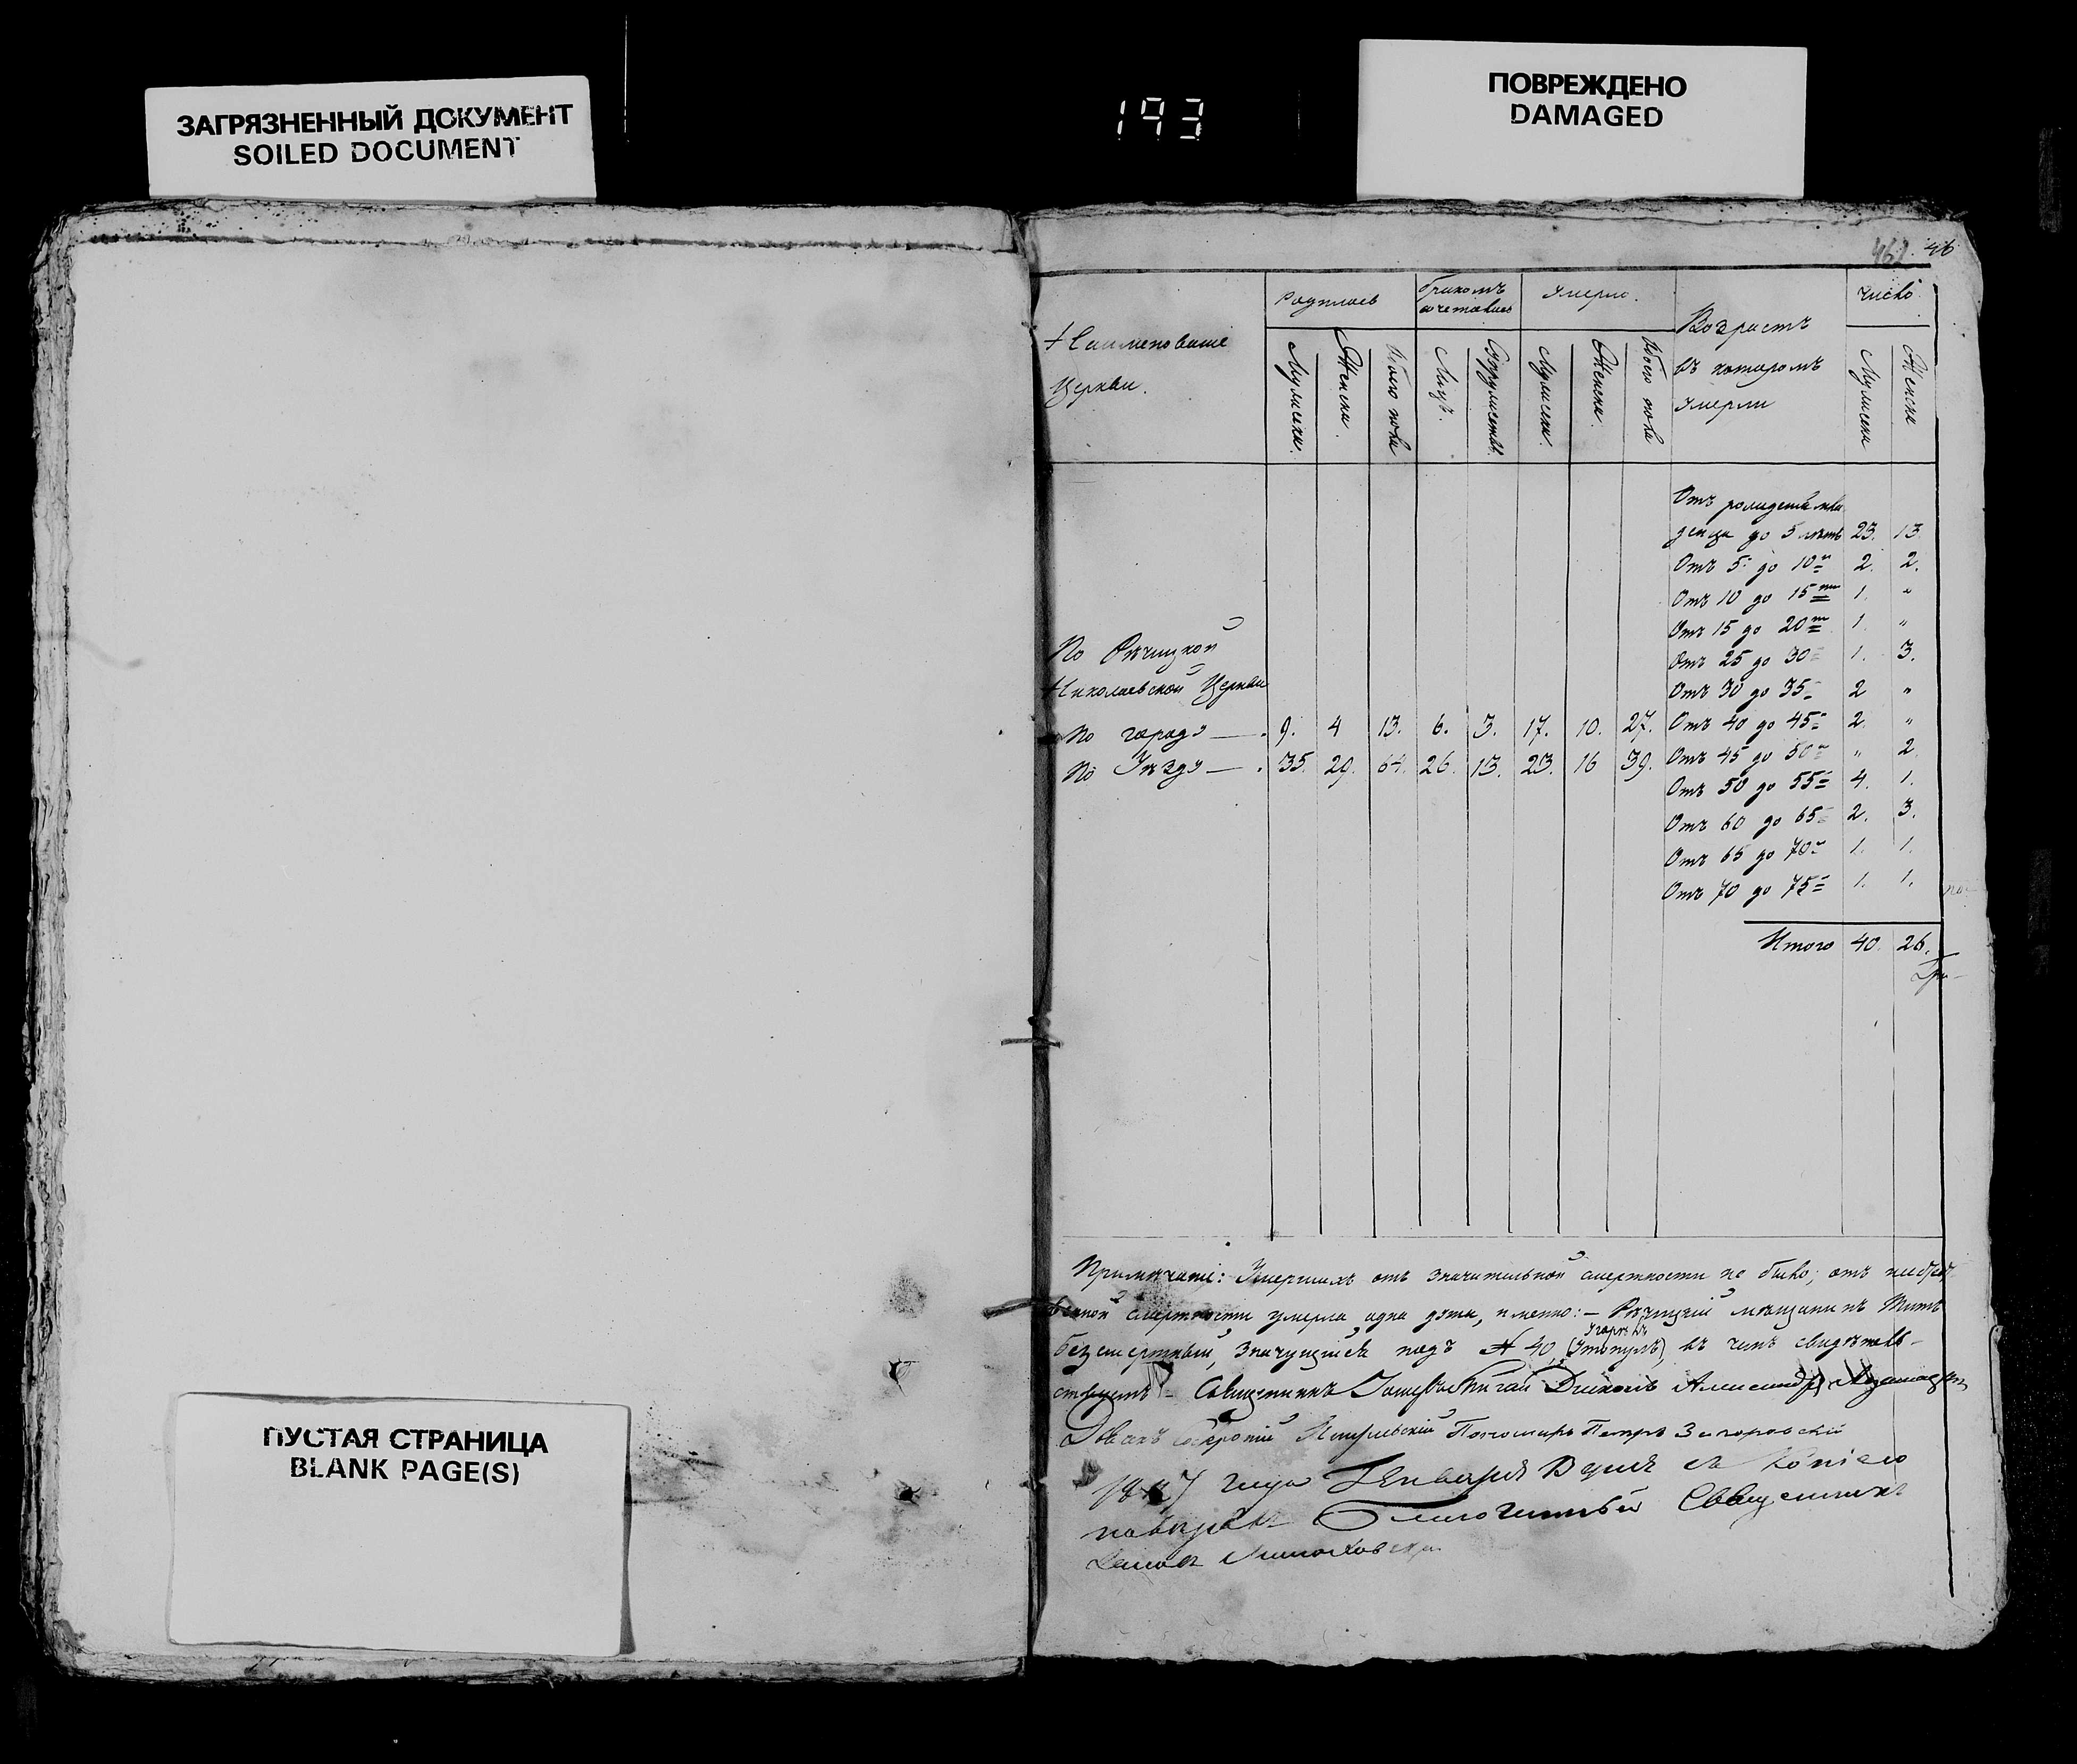 ЗАГРЯЗНЕННЫЙ ДОКУМЕНТ
SOILED DOCUMENT
193
ПОВРЕЖДЕНО
DAMAGED
462 46
Наименованіе Церкви.
Родилось
Бракомъ сочеталось
Умерло.
Возрастъ въ которомъ умерли
Число
Мужеска. Женска. Обоего пола Лицъ. Супружествъ. Мужеска. Женска. Обоего пола Мужеска Женска
Отъ рождества мла
денца до 5 лѣтъ 23. 13.
Отъ 5 до 10 2. 2.
Отъ 10 до 15 1. "
Отъ 15 до 20 1. "
Отъ 25 до 30 1. 3.
Отъ 30 до 35 2 "
Отъ 40 до 45 2. "
Отъ 45 до 50 " 2
Отъ 50 до 55 4. 1.
Отъ 60 до 65 2. 3.
Отъ 65 до 70 1. 1.
Отъ 70 до 75 1. 1.
Итого 40. 26.
По Рѣчицкой
Николаевской Церкви
По городу — 9. 4 13. 6. 3. 17. 10. 27.
По Уѣзду — 35. 29. 64. 26. 13. 23. 16 39.
Примѣчаніе: Умершихъ отъ значительной смертности не было; отъ
смертности умерла одна душа, именно: – Рѣчицкій мѣщанинъ Титъ
Безсмертный, значущійся подъ № 40, (Утонулъ), въ чемъ свидѣтель-
ствуемъ – Священникъ Діаконъ Александръ
Дьячекъ Пономарь Петръ Загоровскій
1847 года Генваря дня съ Копіею
повѣрялъ Благочинный Священникъ
ПУСТАЯ СТРАНИЦА
BLANK PAGE(S)